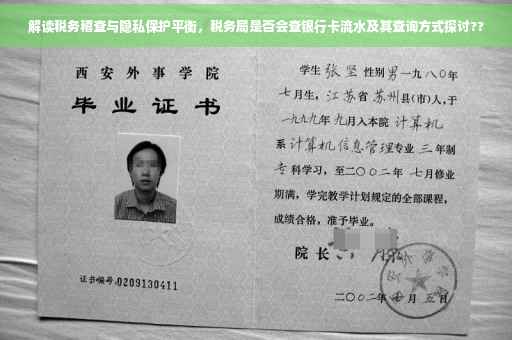 解读税务稽查与隐私保护平衡，税务局是否会查银行卡流水及其查询方式探讨??
西安外事学院
毕业证书
证书编号:0209130411
学生张坚性别男一九八〇年
七月生，江苏省苏州县(市)人，于
一九九九年九月入本院计算机
系计算机信息管理专业三年制
专科学习，至二〇〇二年七月修业
期满，学完教学计划规定的全部课程，
成绩合格，准予毕业。
院长
二〇〇二年 月五日